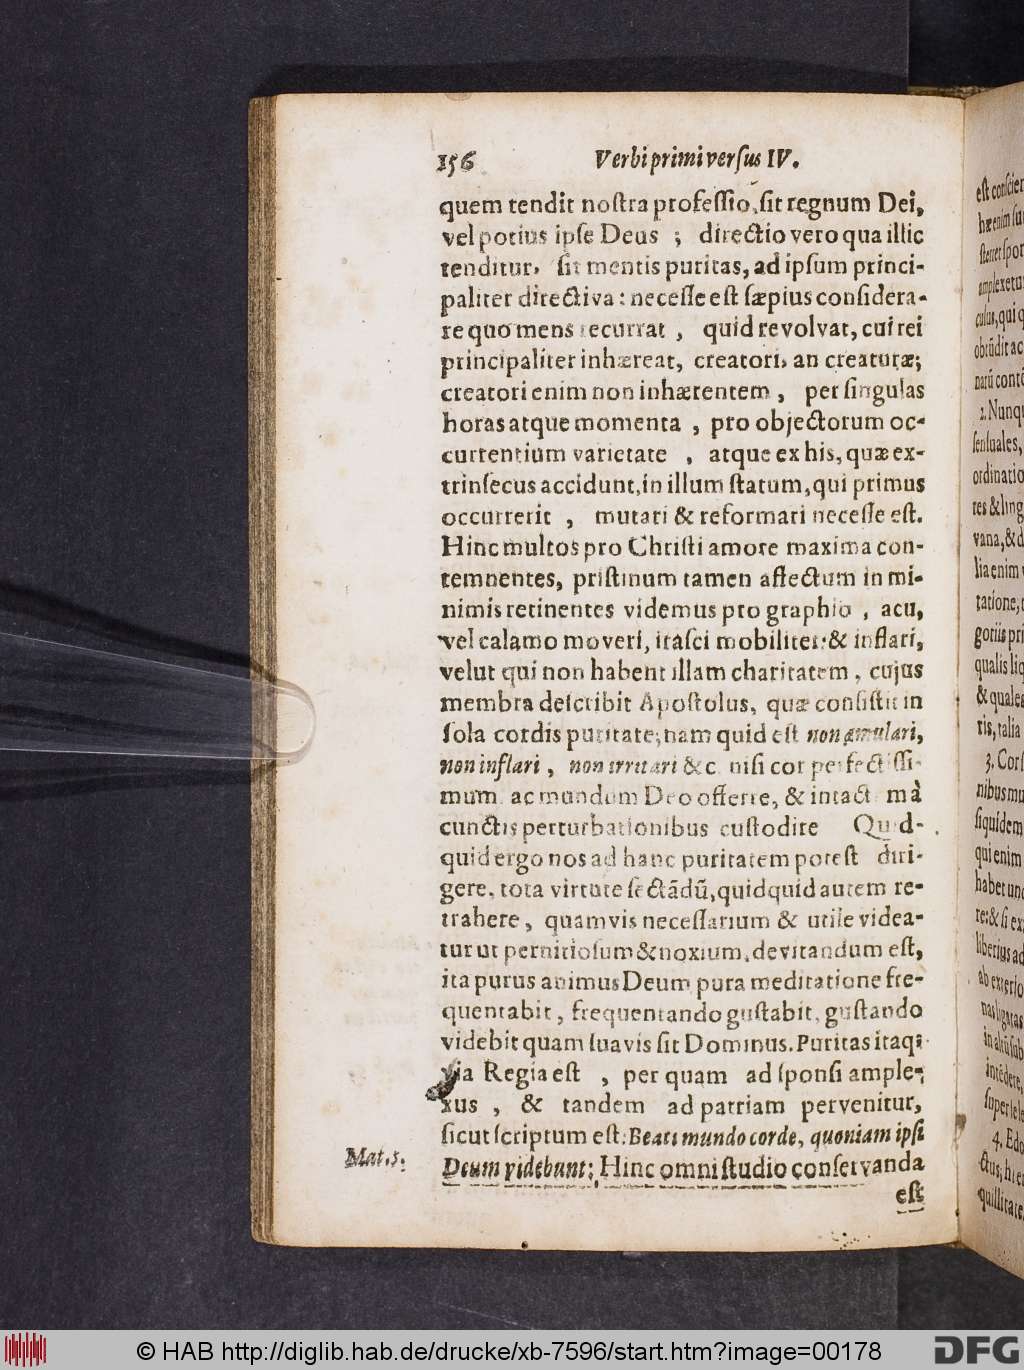 156 Verbi primi versus IV.
quem tendit nostra professio, sit regnum Dei,
vel potius ipse Deus ; directio vero qua illic
tenditur, sit mentis puritas, ad ipsum princi-
paliter directiva : necesse est sæpius considera-
re quo mens recurrat , quid revolvat, cui rei
principaliter inhæreat, creatori, an creaturæ;
creatori enim non inhærentem , per singulas
horas atque momenta , pro objectorum oc-
currentium varietate , atque ex his, quæ ex-
trinsecus accidunt, in illum statum, qui primus
occurrerit , mutari & reformari necesse est.
Hinc multos pro Christi amore maxima con-
temnentes, pristinum tamen affectum in mi-
nimis retinentes videmus pro graphio , acu,
vel calamo moveri, irasci mobiliter & inflari,
velut qui non habent illam charitatem , cujus
membra describit Apostolus, quæ consistit in
sola cordis puritate; nam quid est non æmulari,
non inflari , non irritari &c. nisi cor perfectissi-
mum ac mundum Deo offerre, & intact mà
cunctis perturbationibus custodire Quid-
quid ergo nos ad hanc puritatem potest diri-
gere, tota virtute sectādū, quidquid autem re-
trahere , quamvis necessarium & utile videa-
tur ut pernitiosum & noxium, devitandum est,
ita purus animus Deum pura meditatione fre-
quentabit , frequentando gustabit, gustando
videbit quam suavis sit Dominus. Puritas itaq;
via Regia est , per quam ad sponsi ample-
xus , & tandem ad patriam pervenitur,
sicut scriptum est: Beati mundo corde, quoniam ipsi
Mat. 5. Deum videbunt; Hinc omni studio conservanda
est
© HAB http://diglib.hab.de/drucke/xb-7596/start.htm?image=00178
DFG